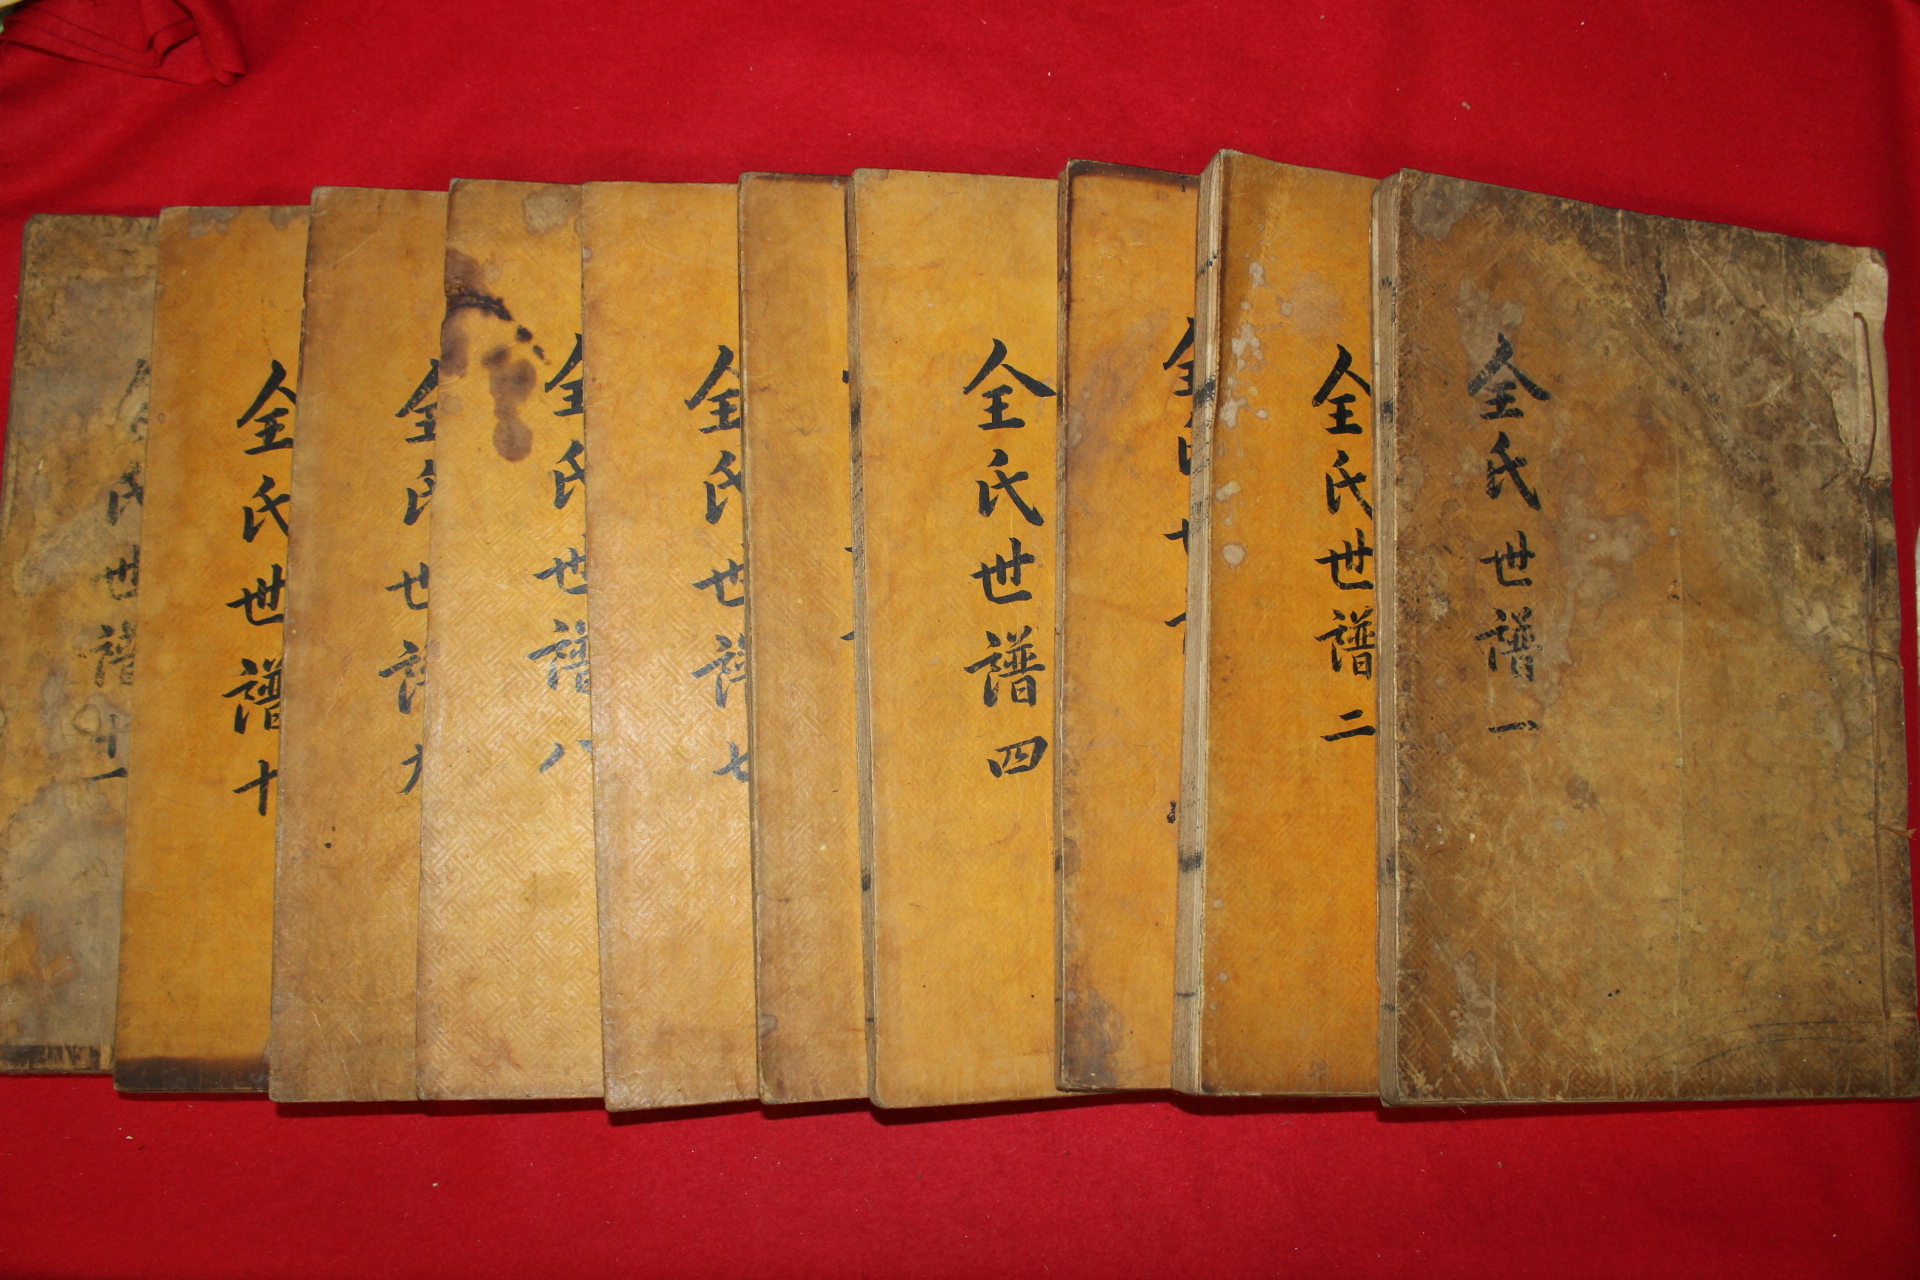 全氏世譜 一
全氏世譜 二
全氏世譜
全氏世譜 四
全氏世譜 七
全氏世譜 八
全氏世譜 九
全氏世譜 十
全氏世譜 十一